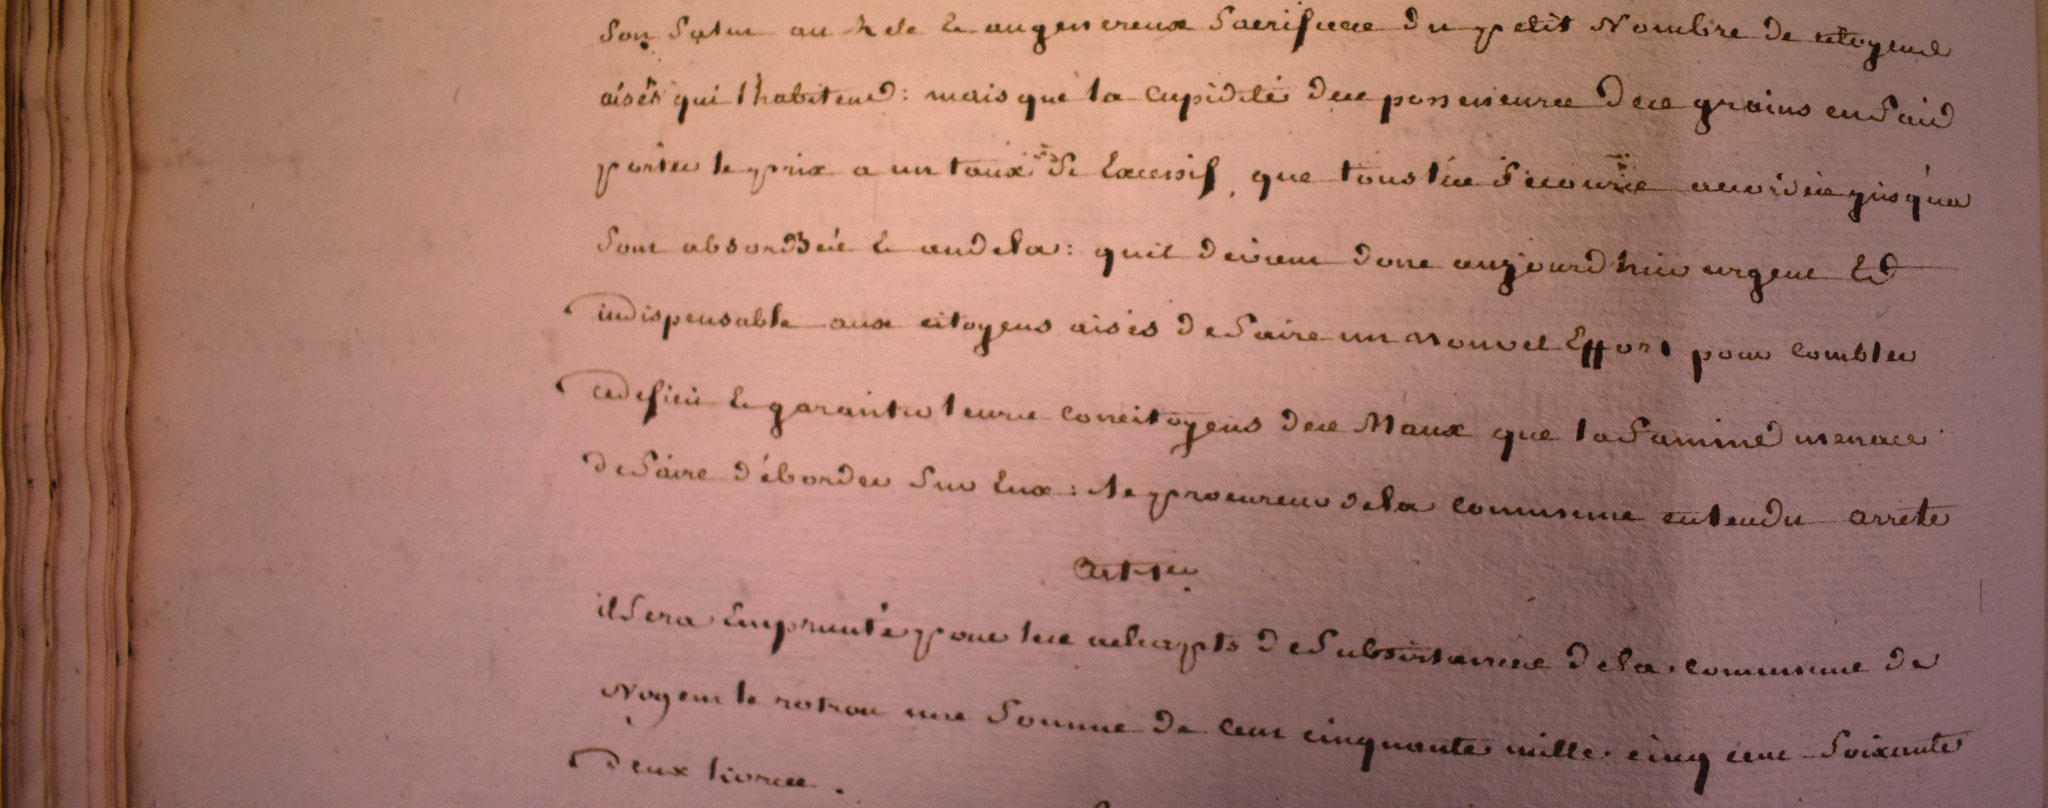 son salut au zele & au genereux sacrifice du petit Nombre de citoyens
aisés qui l'habitent : mais que la cupidité des possesseurs des grains en fait
porter le prix a un taux si Excessif, que tous les secours accordés jusqu'a
sont absorbés & audela : quil devient donc aujourd'huy urgent Et
indispensable aux citoyens aisés de faire un nouvel Effort pour combler
ce deficit & garantir leurs concitoyens des Maux que la famine menace
de faire déborder sur Eux : le procureur dela commune entendu arrete
Art. 1er
il sera Emprunté pour les achapts de subsistances dela commune de
Nogent le rotrou une somme de cent cinquante mille cinq cent soixante
deux livres.